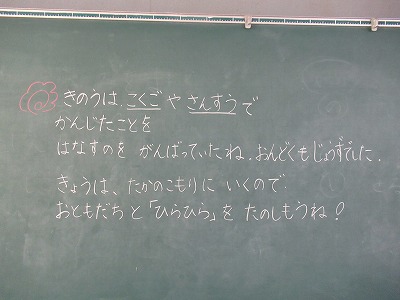 きのうは、こくごやさんすうで
かんじたことを
はなすのを がんばっていたね。おんどくもじょうずでした。
きょうは、たかのこもりに いくので
おともだちと「ひらひら」を たのしもうね!